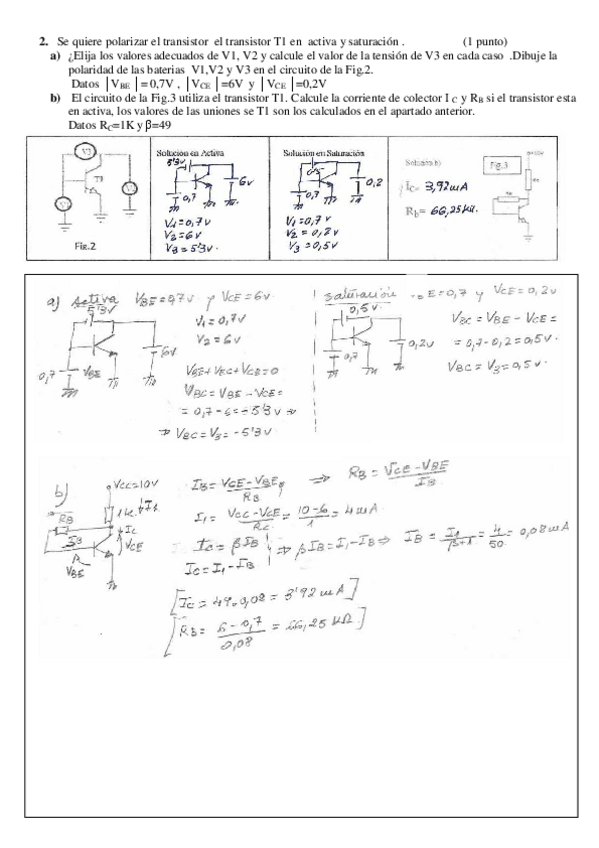 2. Se quiere polarizar el transistor el transistor T1 en activa y saturación . (1 punto)
a) ¿Elija los valores adecuados de V1, V2 y calcule el valor de la tensión de V3 en cada caso .Dibuje la
polaridad de las baterias V1,V2 y V3 en el circuito de la Fig.2.
Datos |VBE | = 0,7V , |VCE | =6V y |VCE | =0,2V
b) El circuito de la Fig.3 utiliza el transistor T1. Calcule la corriente de colector I C y RB si el transistor esta
en activa, los valores de las uniones se T1 son los calculados en el apartado anterior.
Datos RC=1K y β=49
V3
T1
Fig.2
Solucion en Activa
5'3v
6v
0,7
V1=0,7v
V2=6v
V3=5'3v.
Solución en Saturación
0,5v
0,7
0,2
V1=0,7v
V2=0,2v
V3=0,5v
Solución b)
Fig.3
Ic= 3,92mA
Rb= 66,25kΩ.
a) Activa VBE=0,7v y VCE=6v
5'3v
V1=0,7v
V2=6v
0,7
VBE
6v
VBE+VEC+VCB=0
VBC=VBE-VCE=
=0,7-6=-5'3v ⇒
⇒ VBC=V3=-5'3v
saturación E=0,7 y VCE=0,2v
0,5v.
0,7
0,2v
VBC=VBE-VCE=
=0,7-0,2=0,5v.
VBC=V3=0,5v.
b)
Vcc=10v
1k ↓I1
RB
↓Ic
IB
VCE
VBE
IB=VCE-VBE/RB ⇒ RB=VCE-VBE/IB
I1=Vcc-VCE/RC=10-6/1=4mA
Ic=βIB
Ic=I1-IB
⇒ βIB=I1-IB⇒ IB=I1/β+1=4/50=0,08mA
[Ic=49.0,08=3'92mA]
[RB=6-0,7/0,08=66,25kΩ]